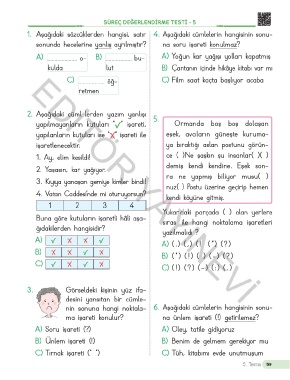 SÜREÇ DEĞERLENDİRME TESTİ - 5
1. Aşağıdaki sözcüklerden hangisi, satır
sonunda hecelerine yanlış ayrılmıştır?
A) ............ o-
kulda
B) ............ bu-
lut
C) ............ öğ-
retmen
2. Aşağıdaki cümlelerden yazım yanlışı
yapılmayanların kutuları "✓" işareti,
yapılanların kutuları ise "X" işareti ile
işaretlenecektir.
1. Ay, elim kesildi!
2. Yaşasın, kar yağıyor.
3. Kıyıya yanaşan gemiye kimler bindi!
4. Vatan Caddesi'nde mi oturuyorsun?
1 2 3 4
Buna göre kutuların işareti hâli aşa-
ğıdakilerden hangisidir?
A) ✓ X X ✓
B) X X ✓ X
C) ✓ X X ✓
3. Görseldeki kişinin yüz ifa-
desini yansıtan bir cümle-
nin sonuna hangi noktala-
ma işareti konulur?
A) Soru işareti (?)
B) Ünlem işareti (!)
C) Tırnak işareti (" ")
4. Aşağıdaki cümlelerin hangisinin sonu-
na soru işareti konulmaz?
A) Yoğun kar yağışı yolları kapatmış
B) Çantanın içinde hikâye kitabı var mı
C) Film saat kaçta başlıyor acaba
5.
Ormanda boş boş dolaşan
eşek, avcıların güneşte kuruma-
ya bıraktığı aslan postunu görün-
ce ( )Ne şaşkın şu insanlar( X )
demiş kendi kendine. Eşek son-
ra ne yapmış biliyor musu( )
nuz( ) Postu üzerine geçirip hemen
kendi köyüne gitmiş.
Yukarıdaki parçada ( ) olan yerlere
sırası ile hangi noktalama işaretleri
yazılmalıdır?
A) (.) (,) (!) (") (?)
B) (") (!) (.) (-) (?)
C) (!) (?) (-) (:) (..)
6. Aşağıdaki cümlelerin hangisinin sonu-
na ünlem işareti (!) getirilemez?
A) Oley, tatile gidiyoruz
B) Benim de gelmem gerekiyor mu
C) Tüh, kitabımı evde unutmuşum
5. Tema
59
EDİTÖR YAYINEVİ